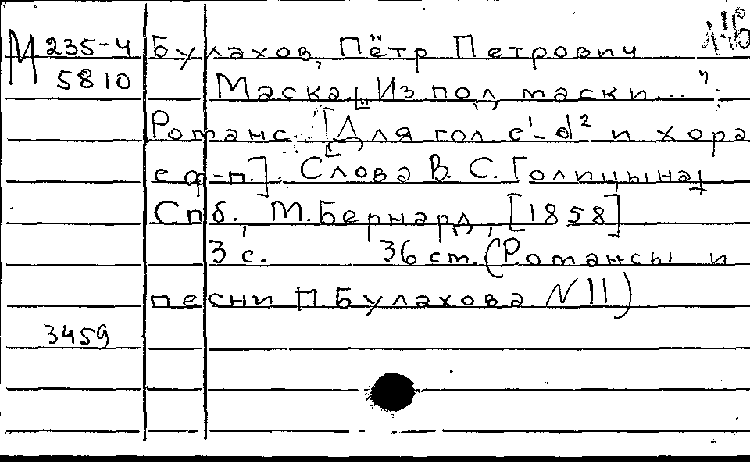 М 235-4 Булахов, Пётр Петрович
5810 Маска „Из под маски..."
Романс. [Для гол. c¹-d² и хора
с ф-п.]. Слова В. С. Голицына
Спб., М. Бернард, [1858]
3 с. 36 см. (Романсы и
песни П. Булахова N 11)
3459